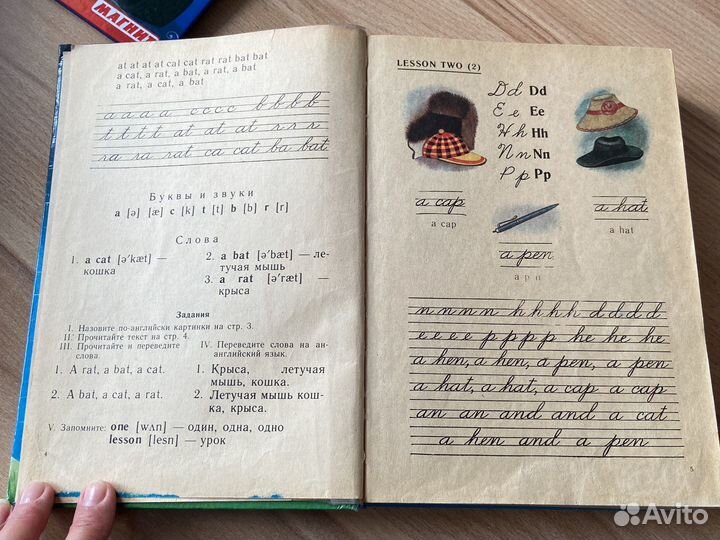 МАГНИТ
at at at at cat cat rat rat bat bat
a cat, a rat, a bat, a rat, a bat
a rat, a cat, a bat
a a a a c c c c b b b b
t t t t t at at at r r r
ra ra rat ca cat ba bat
Буквы и звуки
a [ə] [æ] c [k] t [t] b [b] r [r]
Слова
1. a cat [ə'kæt] — кошка
2. a bat [ə'bæt] — летучая мышь
3. a rat [ə'ræt] — крыса
Задания
I. Назовите по-английски картинки на стр. 3.
II. Прочитайте текст на стр. 4.
III. Прочитайте и переведите слова.
1. A rat, a bat, a cat.
2. A bat, a cat, a rat.
IV. Переведите слова на английский язык.
1. Крыса, летучая мышь, кошка.
2. Летучая мышь кошка, крыса.
V. Запомните: one [wʌn] — один, одна, одно
lesson [lesn] — урок
4
LESSON TWO (2)
D d Dd
E e Ee
H h Hh
N n Nn
P p Pp
a cap
a cap
a hat
a hat
a pen
a p n
n n n n n h h h h d d d d
e e e e p p p p he he he
a hen, a hen, a pen, a pen
a hat, a hat, a cap a cap
an an and and a cat
a hen and a pen
5
Avito